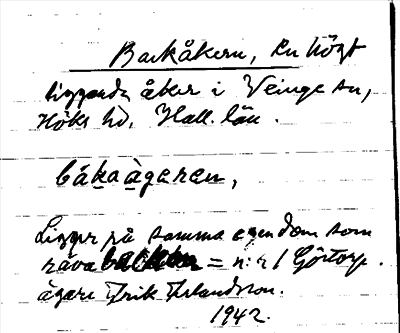 Backåkern, en högt
liggande åker i Veinge sn,
Höks hd, Hall. län.
bákaàgeren,
Ligger på samma egendom som
räva = n:r 1 Göstorp.
ägare Erik Erlandsson.
1942.